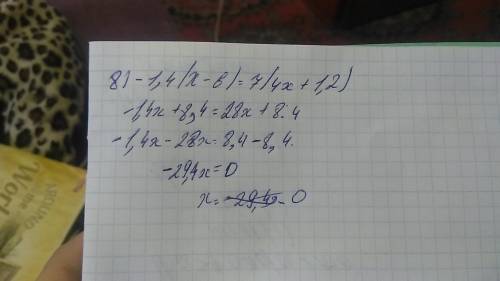 8) -1,4(x-6)=7(4x+1,2)
-1,4x+8,4=28x+8.4
-1,4x-28x=8,4-8,4.
-29,4x=0
x= 0
AROUND
Worl